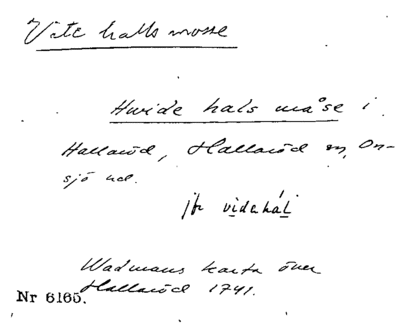 Vite halls mosse
Hwide hals måse i
Hallaröd, Hallaröd sn, On-
sjö hd.
jfr videhál
Wadmans karta över
Hallaröd 1741.
Nr 6165.